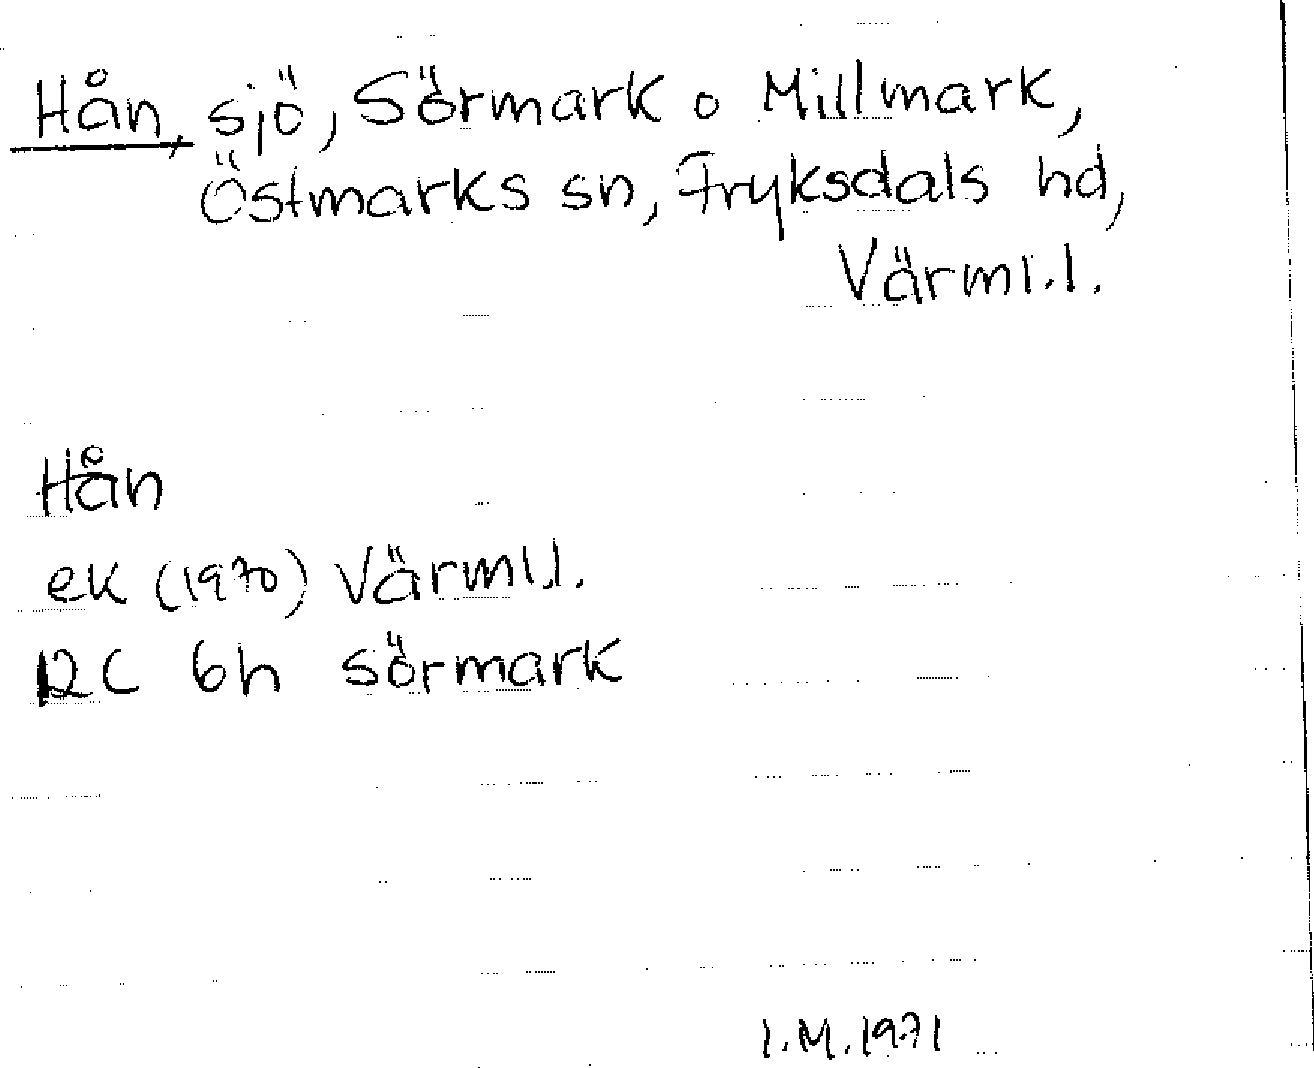 Hån, sjö, Sörmark o Millmark,
Östmarks sn, Fryksdals hd,
Värml.l.
Hån
ek (1970) Värml.l.
12C 6h Sörmark
I.M. 1971